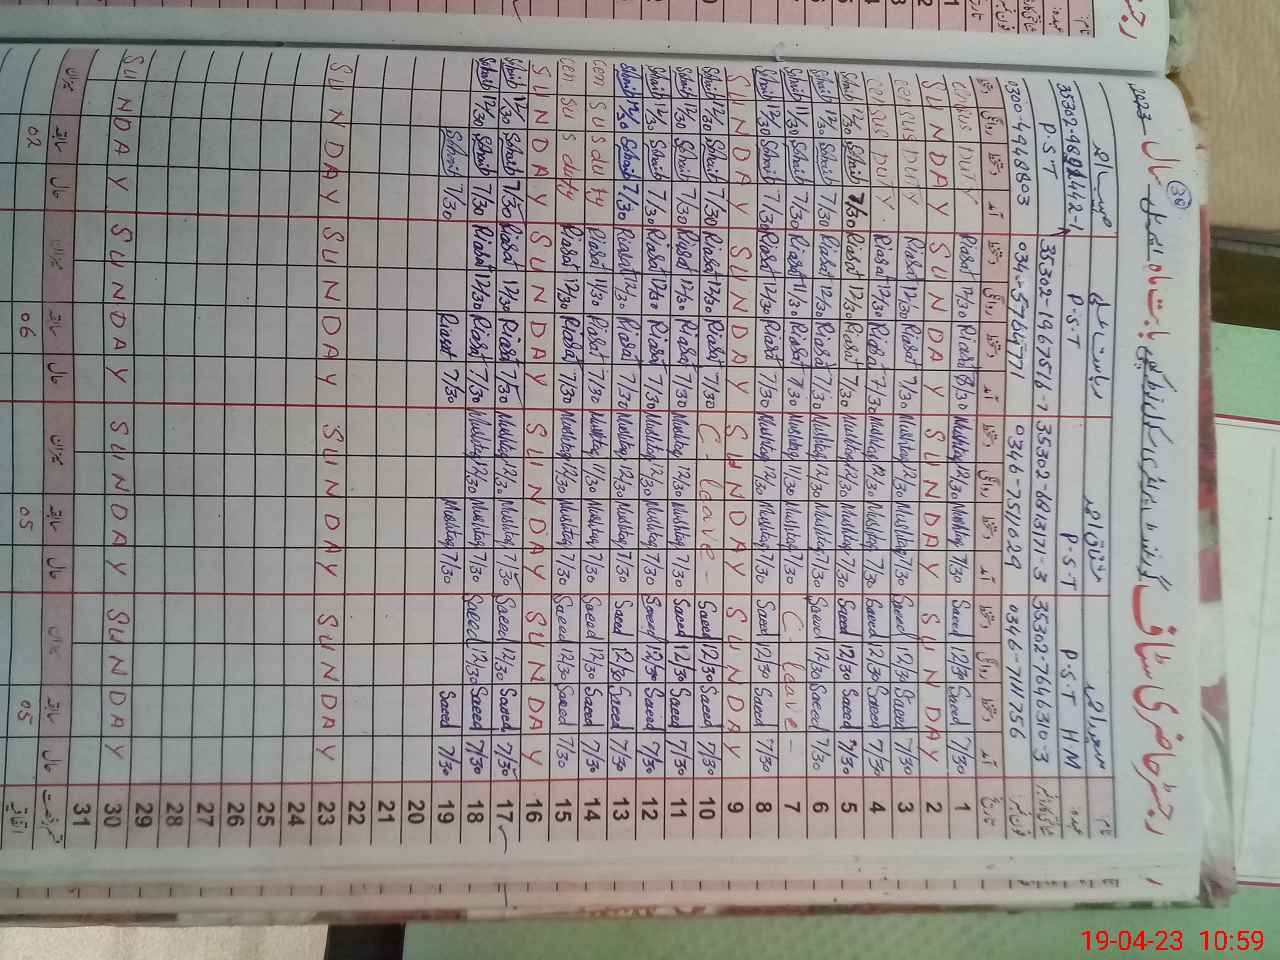 رجسٹر حاضری سٹاف
سال 2023
38
P.S.T H M
P.S.T
P.S.T
P.S.T
35302-7646310-3
35302-6813171-3
35302-1967516-7
0346-7111756
0346-7511029
0300-4498803
1 Saeed 7/30 Saeed 12/30 Mushtaq 7/30 Mushtaq 12/30 Riasat 8/30 Riasat 12/30 Census DUTY
2 SUNDAY SUNDAY SUNDAY SUNDAY
3 Saeed 7/30 Saeed 12/30 Mushtaq 7/30 Mushtaq 12/30 Riasat 7/30 Riasat 12/30 Census DUTY
4 Saeed 7/30 Saeed 12/30 Mushtaq 7/30 Mushtaq 12/30 Riasat 7/30 Riasat 12/30 Census DUTY
5 Saeed 7/30 Saeed 12/30 Mushtaq 7/30 Mushtaq 12/30 Riasat 7/30 Riasat 12/30 Sohaib 7/30 Sohaib 12/30
6 Saeed 7/30 Saeed 12/30 Mushtaq 7/30 Mushtaq 12/30 Riasat 7/30 Riasat 12/30 Sohaib 7/30 Sohaib 12/30
7 C. leave - Mushtaq 7/30 Mushtaq 11/30 Riasat 7/30 Riasat 11/30 Sohaib 7/30 Sohaib 11/30
8 Saeed 7/30 Saeed 12/30 Mushtaq 7/30 Mushtaq 12/30 Riasat 7/30 Riasat 12/30 Sohaib 7/30 Sohaib 12/30
9 SUNDAY SUNDAY SUNDAY SUNDAY
10 Saeed 7/30 Saeed 12/30 C. leave - Riasat 7/30 Riasat 12/30 Sohaib 7/30 Sohaib 12/30
11 Saeed 7/30 Saeed 12/30 Mushtaq 7/30 Mushtaq 12/30 Riasat 7/30 Riasat 12/30 Sohaib 7/30 Sohaib 12/30
12 Saeed 7/30 Saeed 12/30 Mushtaq 7/30 Mushtaq 12/30 Riasat 7/30 Riasat 12/30 Sohaib 7/30 Sohaib 12/30
13 Saeed 7/30 Saeed 12/30 Mushtaq 7/30 Mushtaq 12/30 Riasat 7/30 Riasat 12/30 Sohaib 7/30 Sohaib 12/30
14 Saeed 7/30 Saeed 12/30 Mushtaq 7/30 Mushtaq 11/30 Riasat 7/30 Riasat 11/30 Census duty
15 Saeed 7/30 Saeed 12/30 Mushtaq 7/30 Mushtaq 12/30 Riasat 7/30 Riasat 12/30 Census duty
16 SUNDAY SUNDAY SUNDAY SUNDAY
17 Saeed 7/30 Saeed 12/30 Mushtaq 7/30 Mushtaq 12/30 Riasat 7/30 Riasat 12/30 Sohaib 7/30 Sohaib 12/30
18 Saeed 7/30 Saeed 12/30 Mushtaq 7/30 Mushtaq 12/30 Riasat 7/30 Riasat 12/30 Sohaib 7/30 Sohaib 12/30
19 Saeed 7/30 Mushtaq 7/30 Riasat 7/30 Sohaib 7/30
20
21
22
23 SUNDAY SUNDAY SUNDAY SUNDAY
24
25
26
27
28
29
30 SUNDAY SUNDAY SUNDAY SUNDAY
31
حال سابقہ میزان حال سابقہ میزان حال سابقہ میزان حال سابقہ میزان
05 05 06 02
19-04-23 10:59